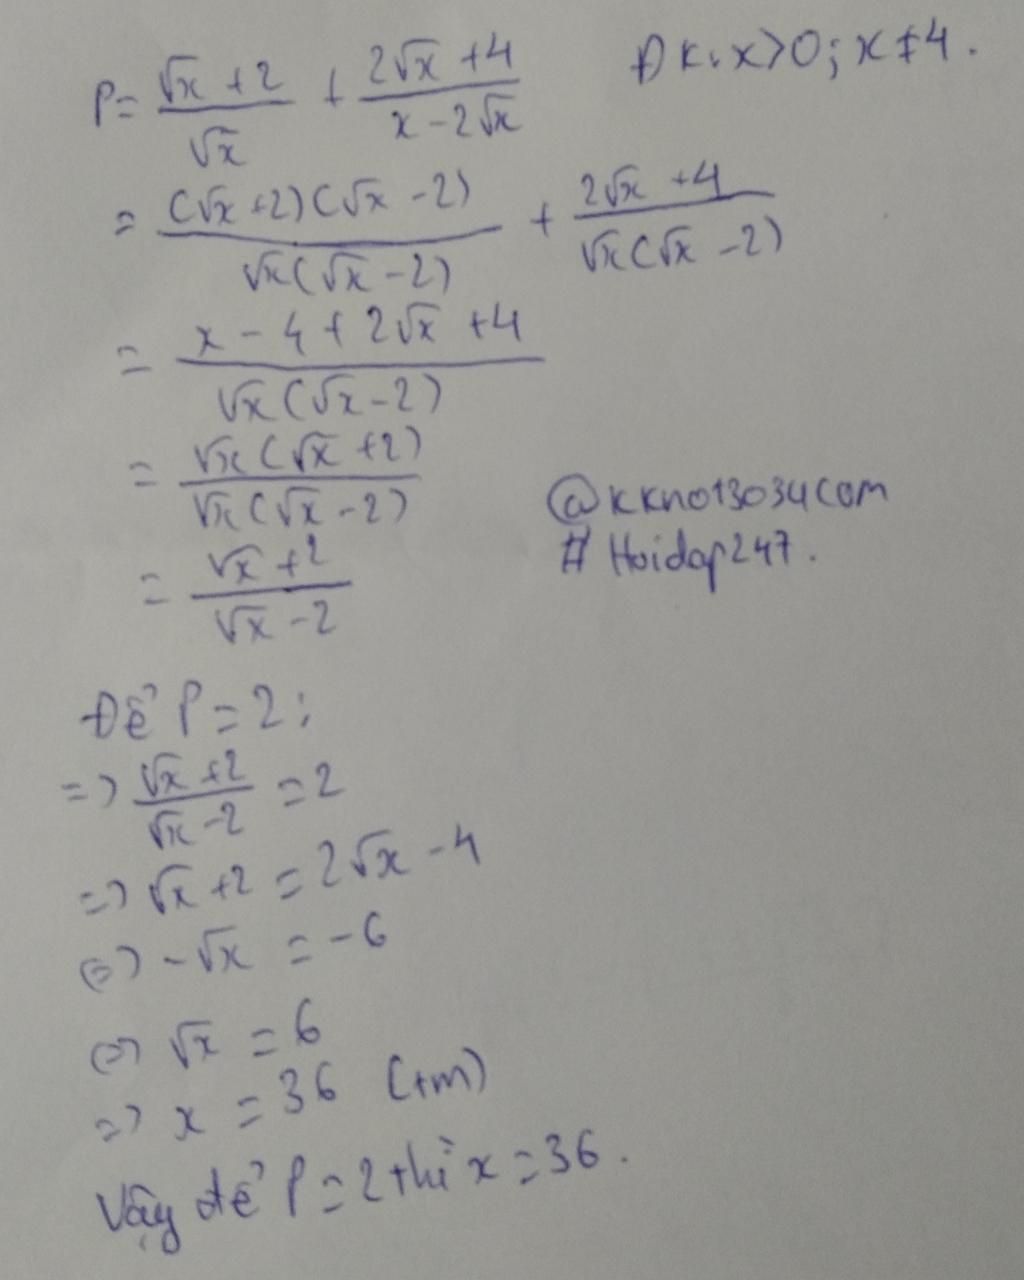 P = (√x + 2)/√x + (2√x + 4)/(x - 2√x) ĐK: x > 0; x ≠ 4.
= (√x + 2)(√x - 2)/√x(√x - 2) + (2√x + 4)/√x(√x - 2)
= (x - 4 + 2√x + 4)/√x(√x - 2)
= √x(√x + 2)/√x(√x - 2)
@kkno13034com
= (√x + 2)/(√x - 2)
# Hoidap247.
Để P = 2:
=> (√x + 2)/(√x - 2) = 2
=> √x + 2 = 2√x - 4
<=> -√x = -6
<=> √x = 6
=> x = 36 (tm)
Vậy để P = 2 thì x = 36.